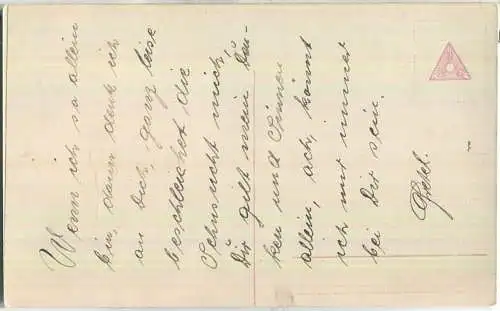 Wenn ich so allein
bin, dann denk ich
an Dich, ganz leise
beschleichet die
Sehnsucht mich,
Dir gilt mein Den-
ken und Sinnen
allein, ach, könnt
ich nur immer
bei Dir sein.
Gretel.